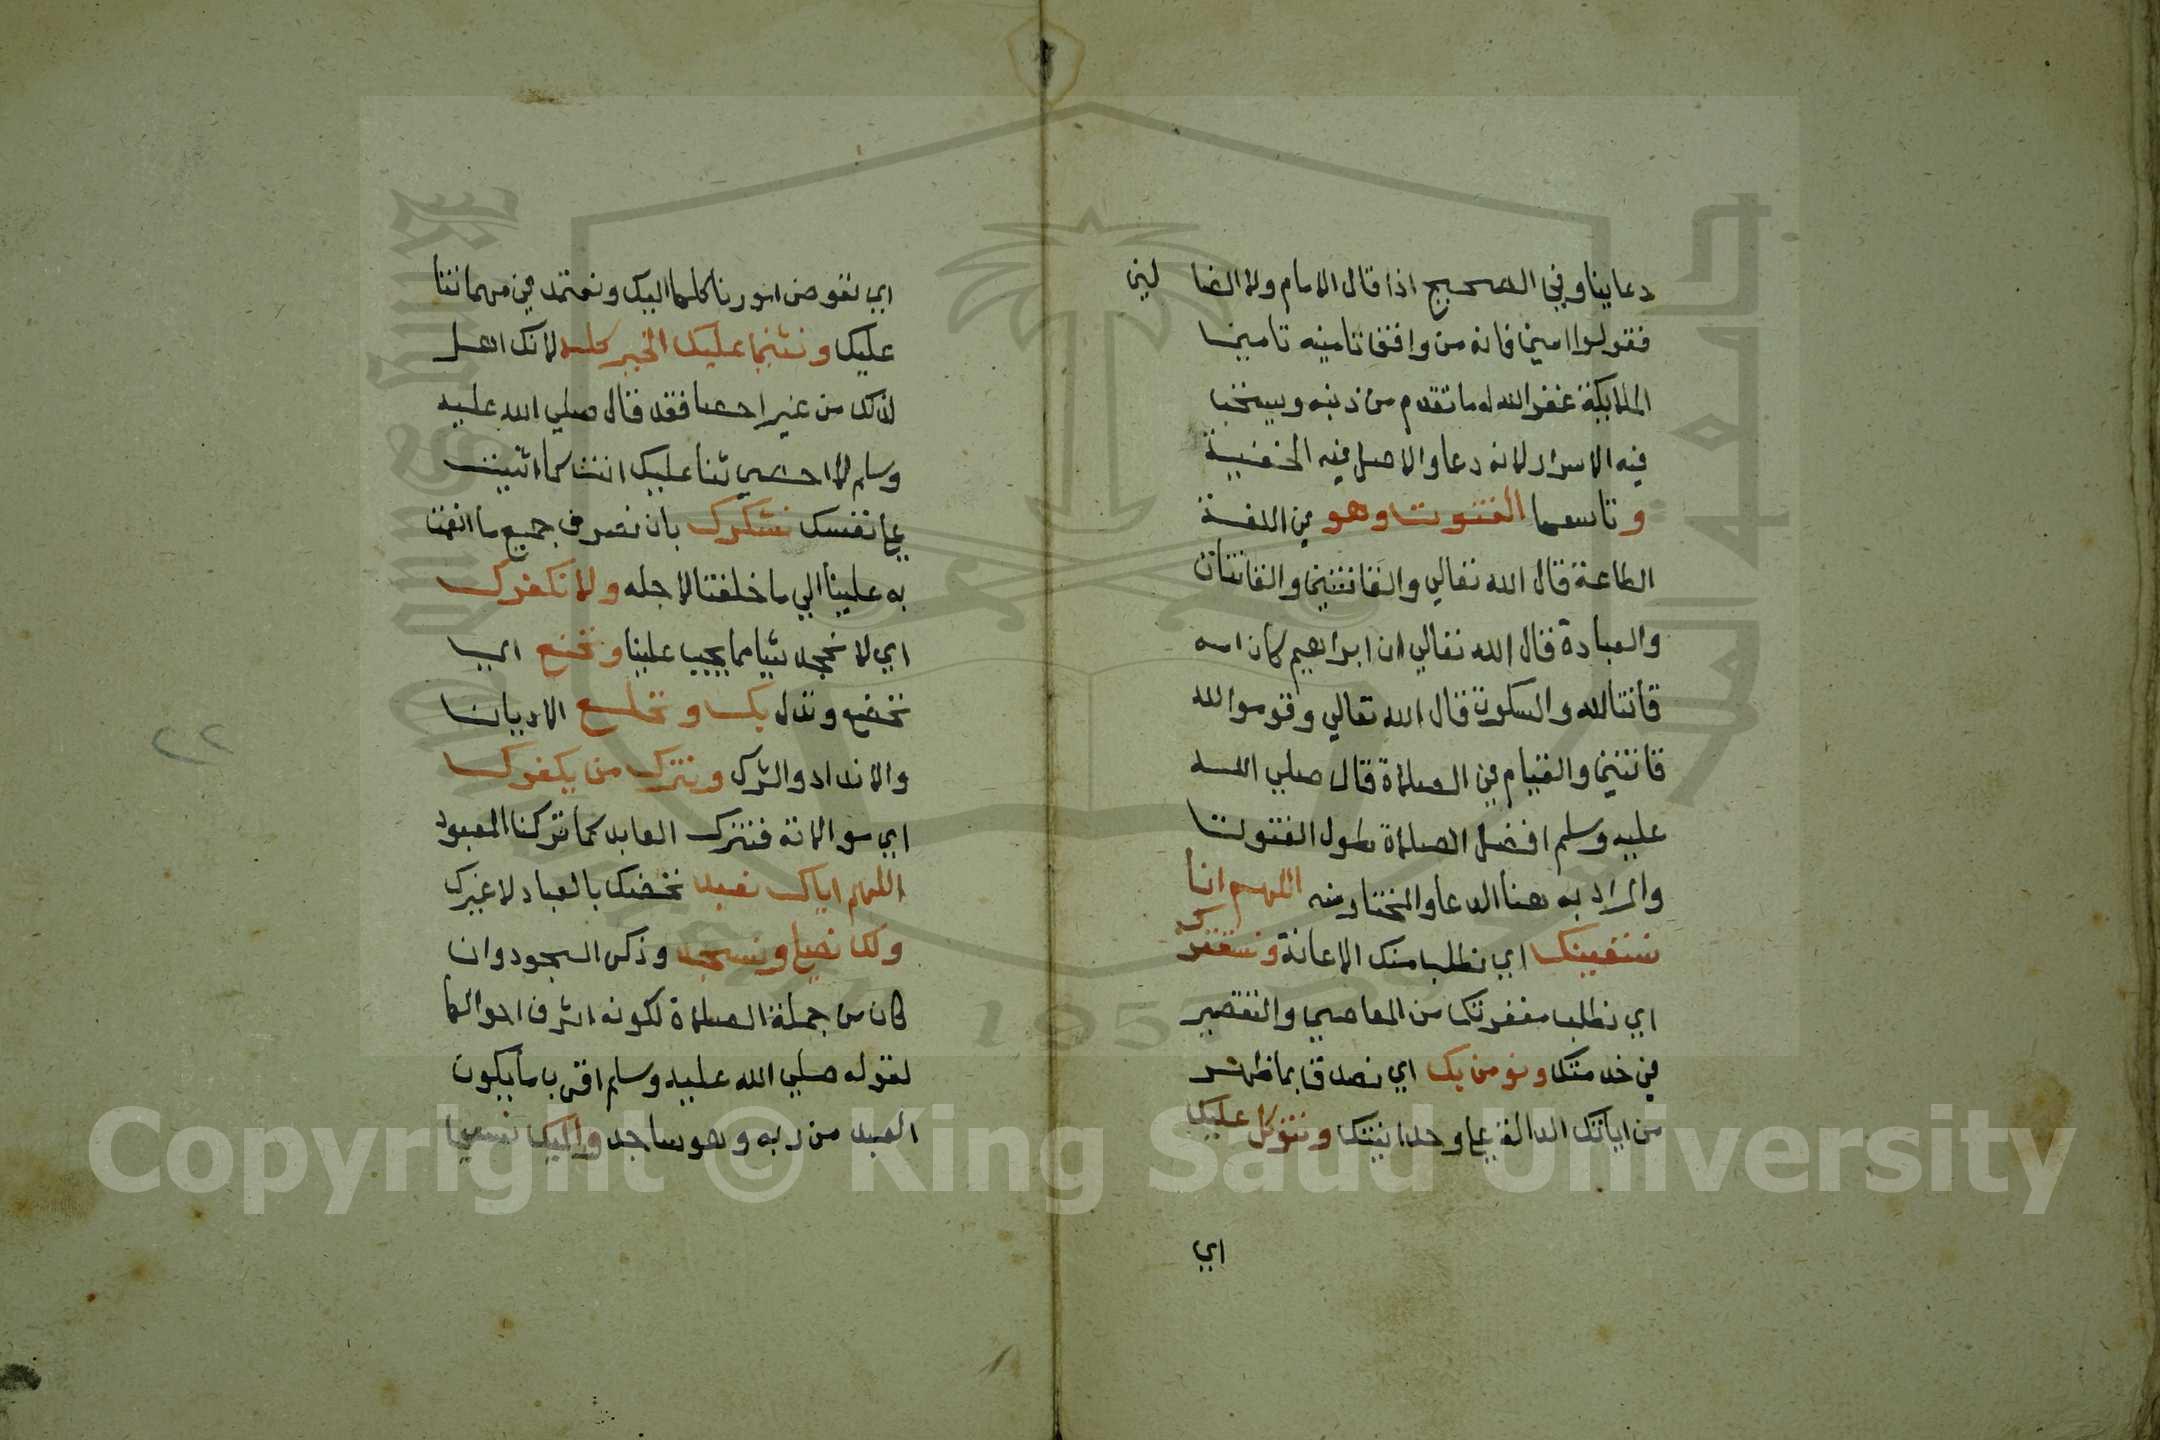 دعاينا وفي الصحيح اذا قال الامام ولا الضا لين
فقولوا امين فانه من وافق تامينه تامين
الملايكة غفر الله له ما تقدم من ذنبه ويستحب
فيه الاسرار لانه دعا والاصل فيه الخفية
وتاسعها القنوت وهو في اللغة
الطاعة قال الله تعالي والقانتين والقانتات
والعبادة قال الله تعالي ان ابراهيم كان امه
قانتا لله والسكوت قال الله تعالي وقوموا لله
قانتين والقيام في الصلاة قال صلي الله
عليه وسلم افضل الصلاة طول القنوت
والمراد به هنا الدعا والمختار منه اللهم انا
نستعينك اي نطلب منك الاعانة ونستغفرك
اي نطلب مغفرتك من المعاصي والتقصير
في خدمتك ونومن بك اي نصدق بما ظهر
من اياتك الدالة علي وحدانيتك ونتوكل عليك
اي
اي نفوض امورنا كلها اليك ونعتمد في مهماتنا
عليك ونثني عليك الخير كله لانك اهل
لذلك من غير احصا فقد قال صلي الله عليه
وسلم لا احصي ثنا عليك انت كما اثنيت
علي نفسك نشكرك بان نصرف جميع ما انعمت
به علينا الي ما خلقتنا لاجله ولا نكفرك
اي لا نجحد شيا مما يجب علينا ونخنع اي
نخضع ونذل لك ونخلع الاديان
والانداد والشرك ونترك من يكفرك
اي سوالاته فنترك العابد كما تركنا المعبود
اللهم اياك نعبد نخضك بالعباد لا غيرك
ولك نصلي ونسجد وذكر السجود وان
كان من جملة الصلاة لكونه اشرف احوالها
لقوله صلي الله عليه وسلم اقرب ما يكون
العبد من ربه وهو ساجد واليك نسعي
٢٢
1957
Copyright © King Saud University